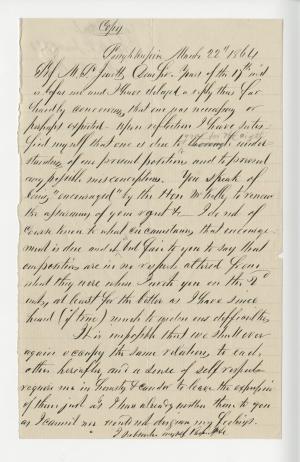 Copy
Poughkeepsie March 22d 1864
Prof M. P. Jewett, Dear Sir. Yours of the 19th inst
is before me and I have delayed a reply thus far
hardly conceiving that one was necessary or
perhaps expected - Upon reflection I have satis-
fied myself that one is due to a thorough under-
standing of our present positions and to prevent
any possible misconceptions. You speak of
being "encouraged" by the Hon Mr Kelly to renew
the assurance of your regret &c - I do not of
course know to what circumstances that encourage-
ment is due and it is but fair to you to say that
my positions are in no respects altered from
what they were when I wrote you on the 2d
unless at least for the latter as I have since
heard (if true) much to widen our difficulties
It is impossible that we shall ever
again occupy the same relations to each
other hereafter and a sense of self respect
requires me in honesty & candor to leave the expression
of them just as I have already written them to you
as I cannot nor would not disguise my feelings.
I subscribe myself Respectfully